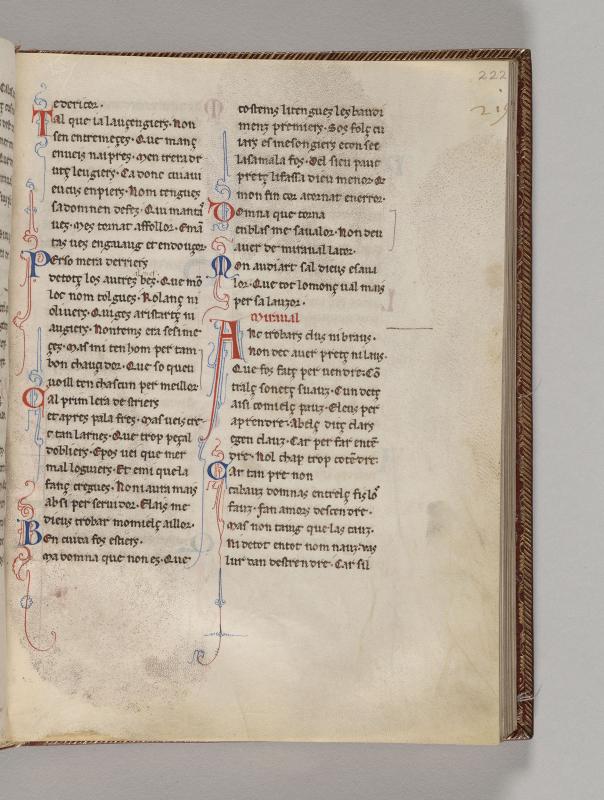 222
219
e dericor.
Tal que ia lauçengiers. Non
sen entremeçes. Que manç
enueis nai pres. Men trera de
urç leugiers. Ca donc
eucus enpiers. Nom tengues
sa domnen defes.
ues. Mes tornat affollor.
tas ues enguang et endouçor
Perso mera derriers
detotç los autres bes. Que
loc nom tolgues. Rolanç ni
oliuers. Qui ges aristarte ni
augiers. Non tems era ses me
ces. Mas mi ten hom per tam
bon chauçidor. Que so queu
uoill ten chascun per meillor
Cal prim lera destriers
et apres pala fres. Mas ueis
tan larnes. Que trop peçal
dobliers. E pos uei que mer
mal loguiers. Et emi quela
fanç cregues. Noni aura mais
ab si per seruidor. E lais me
dieus trobar momielç aillor.
Ben cuida fos estiers.
ma domna que non es. Que
costems litenguez les
menz premiers. Sos folç cu
iars es mesongiers econ set
la samala fos. Del sieu pauc
pretç li fassa dieu menor. E
mon fin cor atornat enerror.
Domna que torna
en blasme sa ualor. Non deu
auer de miraual lator.
Mon audiart sal dieus esaua
lor. Que tot lomonç ual mais
per sa lauzor.
Miraual
Anc trobars clus ni braus.
Non dec auer pretç ni laus.
Que fos fatç per uendre.
tralç sonetç suaus. Cun detç
aisi comielç paus. E leus per
aprendre. Abelç ditç clars
egen claus. Car per far
dre. Nol chap trop
Car tan pre non
cabaus domnas entrels
faus. fan amors descendre.
Mas non taing que las caus.
Ni de tot en tot nom naus.
lur dan destrendre. Car sil